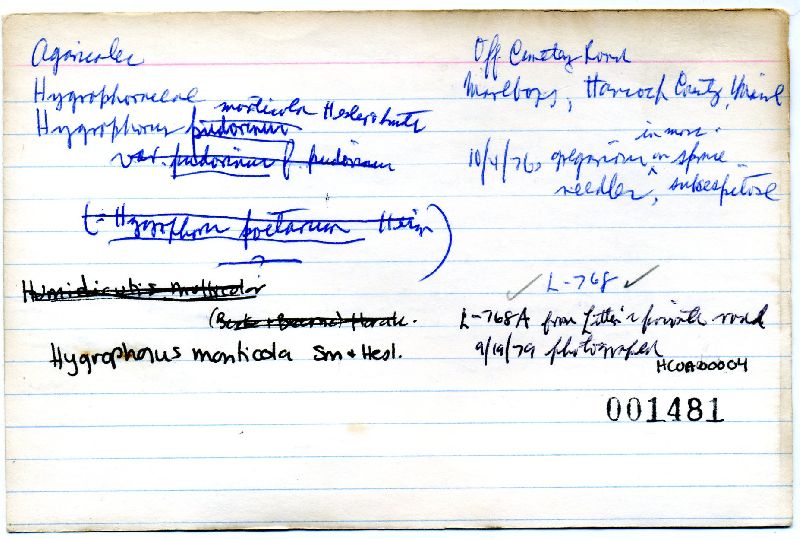 Agaricales
Hygrophoraceae
monticola Hesler & Smith
Hygrophorus pudorinus
var. pudorinus f. pudorinus
(= Hygrophorus poetarum Heim)
?
Humidicutis
(Beck
Hygrophorus monticola Sm & Hesl.
Off Cemetery Road
Marlboro, Hancock County, Maine
in moss.
10/4/76, gregarious on spruce
needles, subcespitose
L-768 ✓
L-768A from private road
9/19/79 photographed
HCOA00004
001481